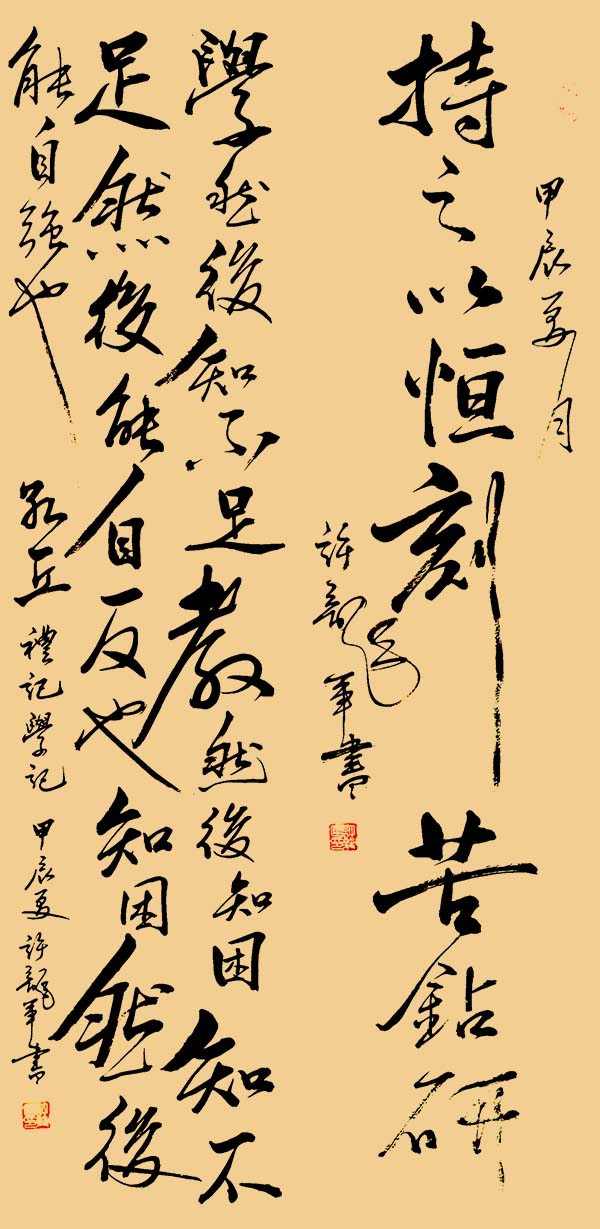 甲辰夏月
持之以恒刻苦鉆研
許龍軍書
學然後知不足教然後知困知不
足然後能自反也知困然後
能自强也
孔丘禮記學記甲辰夏許龍軍書